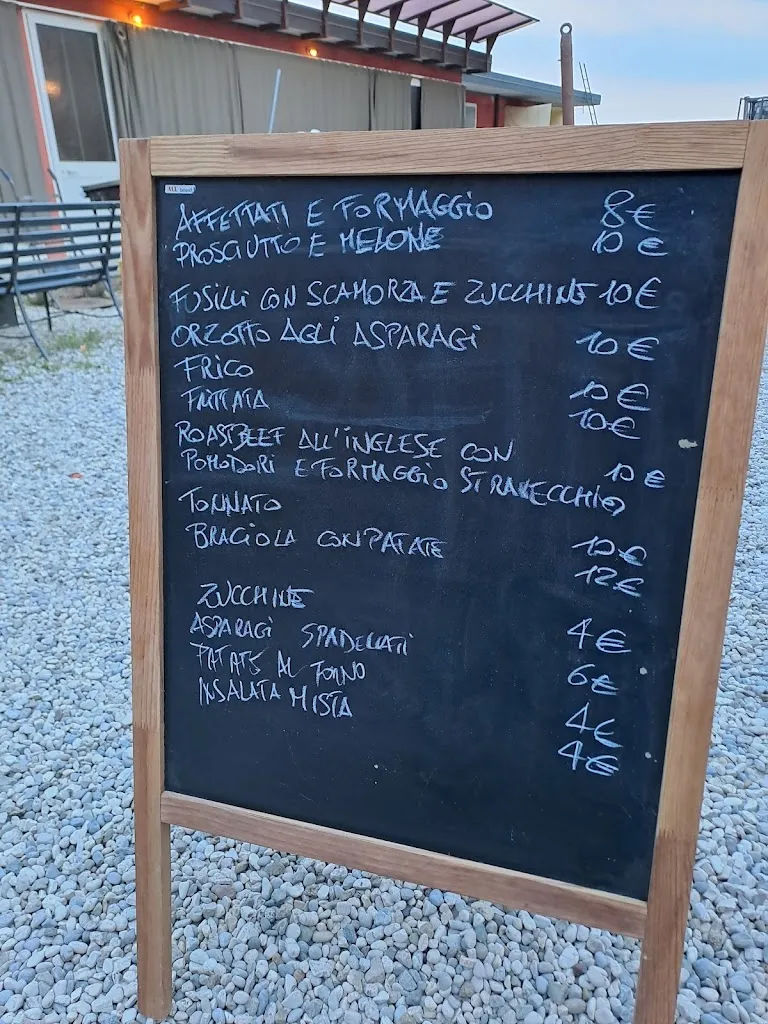 AFFETTATI E FORMAGGIO 8€
PROSCIUTTO E MELONE 10 €
FUSILLI CON SCAMORZA E ZUCCHINE 10€
ORZOTTO AGLI ASPARAGI 10€
FRICO 10€
FRITTATA 10€
ROASTBEEF ALL'INGLESE CON
POMODORI E FORMAGGIO STRAVECCHIO 10€
TONNATO 10€
BRACIOLA CON PATATE 12€
ZUCCHINE 4€
ASPARAGI SPADELLATI 6€
PATATE AL FORNO 4€
INSALATA MISTA 4€